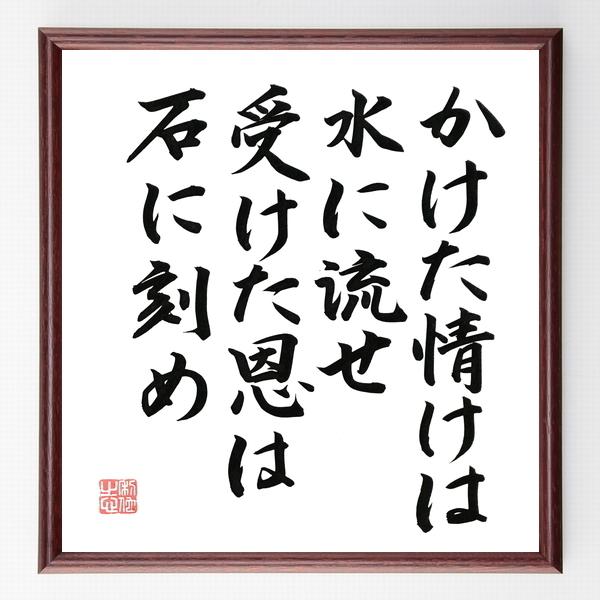 かけた情けは
水に流せ
受けた恩は
石に刻め